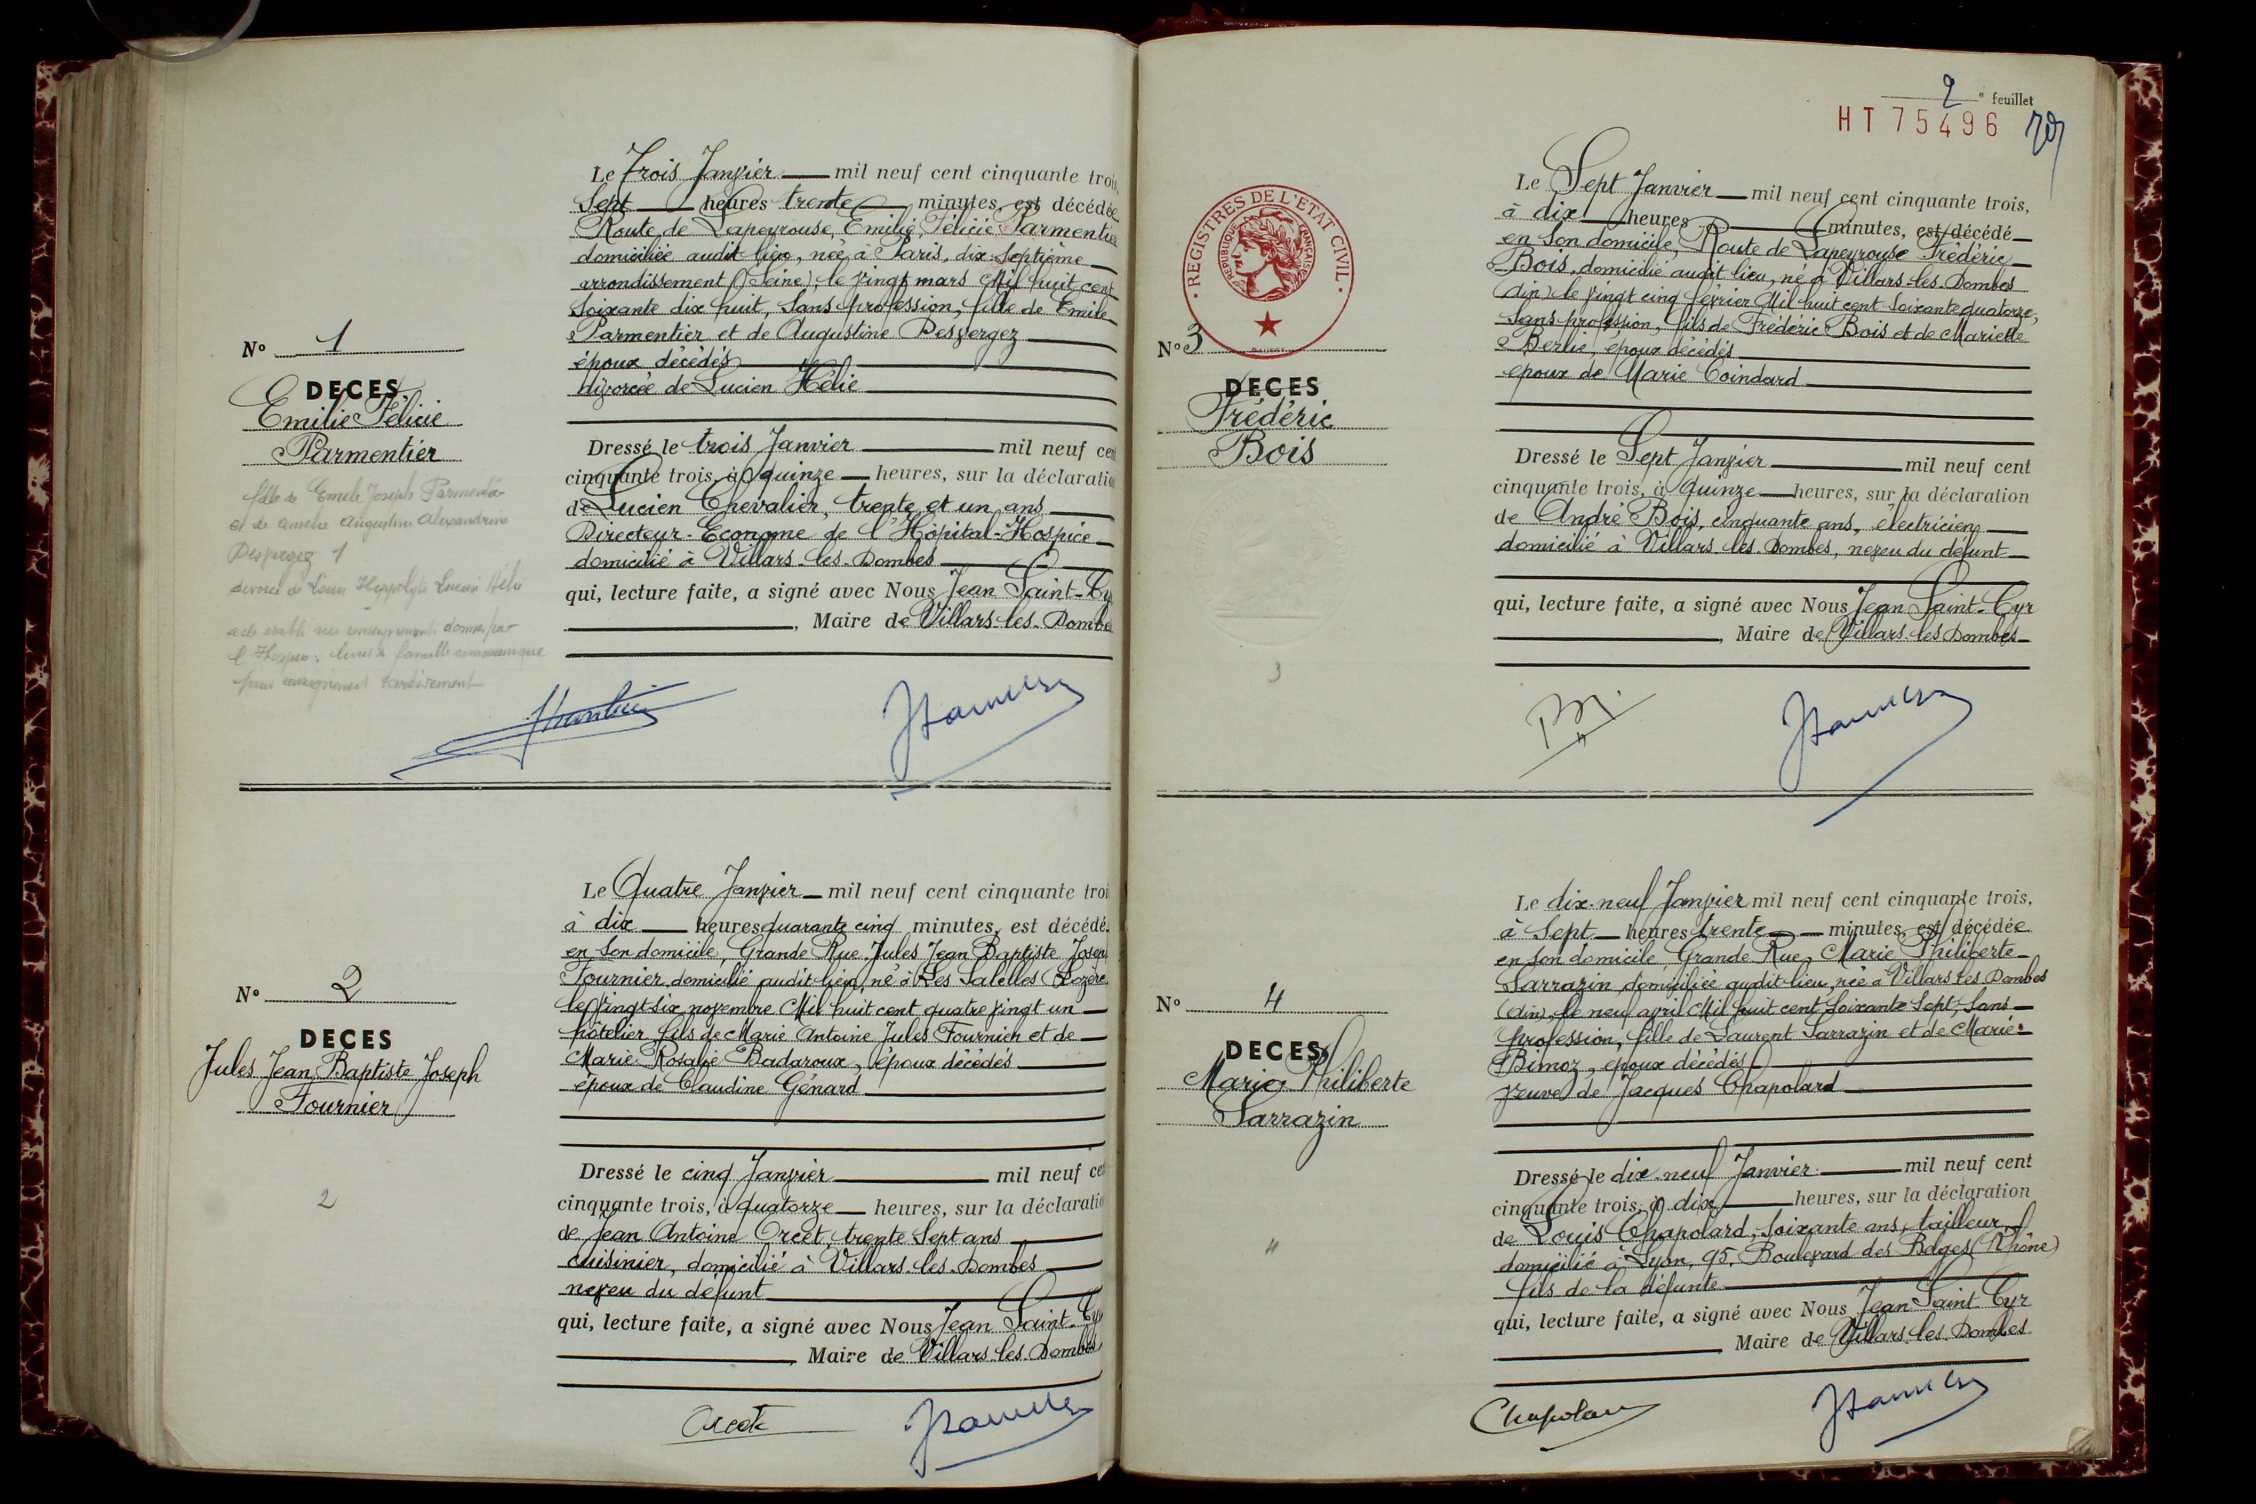 Le Trois Janvier mil neuf cent cinquante trois,
Sept heures trente minutes, est décédée
Route de Lapeyrouse, Emilie, Félicie Parmentier
domiciliée audit lieu, née à Paris, dix-septième
arrondissement (Seine), le vingt mars Mil huit cent
soixante dix huit, sans profession, fille de Emile
Parmentier et de Augustine Desvergez
époux décédés
divorcée de Lucien Hélie
N° 1
DECES
Emilie Félicie
Parmentier
fille de Emile Joseph Parmentier
et de Amélie Augustine Alexandrine
Desvergez 1
divorcé de Louis Hippolyte Lucien Hélie
acte établi sur renseignements donnés par
l'Hospice. livret de famille communiqué
pour renseignement tardivement
Dressé le trois Janvier mil neuf cent
cinquante trois, à quinze heures, sur la déclaration
de Lucien Chevalier, trente et un ans
Directeur-Econome de l'Hôpital-Hospice
domicilié à Villars-les-Dombes
qui, lecture faite, a signé avec Nous Jean Saint-Cyr
, Maire de Villars-les-Dombes
Le Quatre Janvier mil neuf cent cinquante trois
à dix heures quarante cinq minutes, est décédé
en son domicile, Grande Rue, Jules Jean Baptiste Joseph
Fournier domicilié audit lieu, né à Les Salelles (Lozère)
le vingt-six novembre Mil huit cent quatre vingt un
hôtelier, fils de Marie Antoine Jules Fournier et de
Marie Rosalie Badaroux, époux décédés
époux de Claudine Génard
N° 2
DECES
Jules Jean Baptiste Joseph
Fournier
2
Dressé le cinq Janvier mil neuf cent
cinquante trois, à quatorze heures, sur la déclaration
de Jean Antoine Orcet, trente sept ans
cuisinier, domicilié à Villars-les-Dombes
neveu du défunt
qui, lecture faite, a signé avec Nous Jean Saint-Cyr
, Maire de Villars-les-Dombes
Orcet
2e feuillet
HT 75496
Le Sept Janvier mil neuf cent cinquante trois,
à dix heures minutes, est décédé
en son domicile, Route de Lapeyrouse Frédéric
Bois, domicilié audit lieu, né à Villars-les-Dombes
(Ain) le vingt cinq février Mil huit cent soixante quatorze,
sans profession, fils de Frédéric Bois et de Mariette
Berlie, époux décédés
époux de Marie Coindard
REGISTRES DE L'ETAT CIVIL
REPUBLIQUE FRANÇAISE
N° 3
DECES
Frédéric
Bois
Dressé le Sept Janvier mil neuf cent
cinquante trois, à quinze heures, sur la déclaration
de André Bois, cinquante ans, électricien
domicilié à Villars-les-Dombes, neveu du défunt
qui, lecture faite, a signé avec Nous Jean Saint-Cyr
, Maire de Villars-les-Dombes
3
Le dix-neuf Janvier mil neuf cent cinquante trois,
à Sept heures trente minutes, est décédée
en son domicile Grande Rue, Marie Philiberte
Sarrazin domiciliée audit lieu, née à Villars-les-Dombes
(Ain), le neuf avril Mil huit cent soixante sept, sans
profession, fille de Laurent Sarrazin et de Marie
Bimoz, époux décédés
veuve de Jacques Chapolard
N° 4
DECES
Marie Philiberte
Sarrazin
4
Dressé le dix-neuf Janvier mil neuf cent
cinquante trois, à dix heures, sur la déclaration
de Louis Chapolard, soixante ans, tailleur
domicilié à Lyon, 95, Boulevard des Belges (Rhône)
fils de la défunte
qui, lecture faite, a signé avec Nous Jean Saint-Cyr
Maire de Villars-les-Dombes
Chapolard